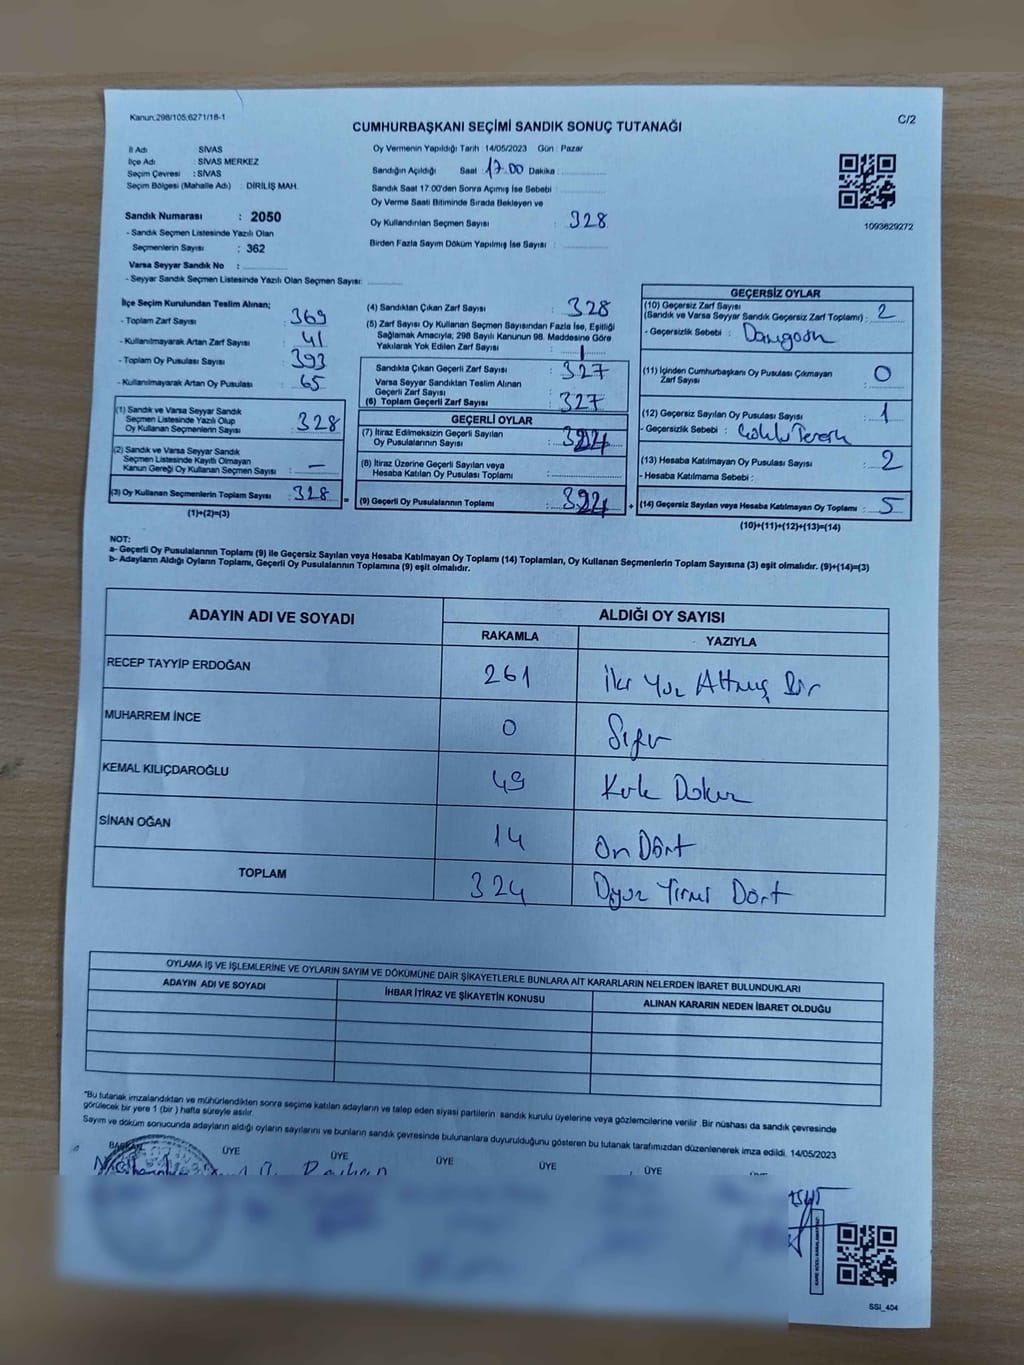 Kanun:298/105,6271/18-1
C/2
CUMHURBAŞKANI SEÇİMİ SANDIK SONUÇ TUTANAĞI
İl Adı SİVAS
İlçe Adı : SİVAS MERKEZ
Seçim Çevresi : SİVAS
Seçim Bölgesi (Mahalle Adı) : DİRİLİŞ MAH.
Sandık Numarası : 2050
- Sandık Seçmen Listesinde Yazılı Olan
Seçmenlerin Sayısı : 362
Varsa Seyyar Sandık No :
- Seyyar Sandık Seçmen Listesinde Yazılı Olan Seçmen Sayısı:
Oy Vermenin Yapıldığı Tarih : 14/05/2023 Gün : Pazar
Sandığın Açıldığı Saat : 17.00 Dakika :
Sandık Saat 17:00'den Sonra Açımış İse Sebebi :
Oy Verme Saati Bitiminde Sırada Bekleyen ve
Oy Kullandırılan Seçmen Sayısı : 328
Birden Fazla Sayım Döküm Yapılmış İse Sayısı :
1093629272
İlçe Seçim Kurulundan Teslim Alınan;
- Toplam Zarf Sayısı : 369
- Kullanılmayarak Artan Zarf Sayısı : 41
- Toplam Oy Pusulası Sayısı : 393
- Kullanılmayarak Artan Oy Pusulası : 65
(1) Sandık ve Varsa Seyyar Sandık
Seçmen Listesinde Yazılı Olup
Oy Kullanan Seçmenlerin Sayısı : 328
(2) Sandık ve Varsa Seyyar Sandık
Seçmen Listesinde Kayıtlı Olmayan
Kanun Gereği Oy Kullanan Seçmen Sayısı : —
(3) Oy Kullanan Seçmenlerin Toplam Sayısı : 328 =
(1)+(2)=(3)
(4) Sandıktan Çıkan Zarf Sayısı : 328
(5) Zarf Sayısı Oy Kullanan Seçmen Sayısından Fazla İse, Eşitliği
Sağlamak Amacıyla, 298 Sayılı Kanunun 98. Maddesine Göre
Yakılarak Yok Edilen Zarf Sayısı : 1
Sandıkta Çıkan Geçerli Zarf Sayısı : 327
Varsa Seyyar Sandıktan Teslim Alınan
Geçerli Zarf Sayısı :
(6) Toplam Geçerli Zarf Sayısı : 327
GEÇERLİ OYLAR
(7) İtiraz Edilmeksizin Geçerli Sayılan
Oy Pusulalarının Sayısı : 324
(8) İtiraz Üzerine Geçerli Sayılan veya
Hesaba Katılan Oy Pusulası Toplamı :
(9) Geçerli Oy Pusulalarının Toplamı : 324 +
GEÇERSİZ OYLAR
(10) Geçersiz Zarf Sayısı
(Sandık ve Varsa Seyyar Sandık Geçersiz Zarf Toplamı) : 2
- Geçersizlik Sebebi :
(11) İçinden Cumhurbaşkanı Oy Pusulası Çıkmayan
Zarf Sayısı : 0
(12) Geçersiz Sayılan Oy Pusulası Sayısı : 1
- Geçersizlik Sebebi :
(13) Hesaba Katılmayan Oy Pusulası Sayısı : 2
- Hesaba Katılmama Sebebi :
(14) Geçersiz Sayılan veya Hesaba Katılmayan Oy Toplamı : 5
(10)+(11)+(12)+(13)=(14)
NOT:
a- Geçerli Oy Pusulalarının Toplamı (9) ile Geçersiz Sayılan veya Hesaba Katılmayan Oy Toplamı (14) Toplamları, Oy Kullanan Seçmenlerin Toplam Sayısına (3) eşit olmalıdır. (9)+(14)=(3)
b- Adayların Aldığı Oyların Toplamı, Geçerli Oy Pusulalarının Toplamına (9) eşit olmalıdır.
ADAYIN ADI VE SOYADI ALDIĞI OY SAYISI
RAKAMLA YAZIYLA
RECEP TAYYİP ERDOĞAN 261 İki Yüz Altmış Bir
MUHARREM İNCE 0 Sıfır
KEMAL KILIÇDAROĞLU 49 Kırk Dokuz
SİNAN OĞAN 14 On Dört
TOPLAM 324 Üçyüz Yirmi Dört
OYLAMA İŞ VE İŞLEMLERİNE VE OYLARIN SAYIM VE DÖKÜMÜNE DAİR ŞİKAYETLERLE BUNLARA AİT KARARLARIN NELERDEN İBARET BULUNDUKLARI
ADAYIN ADI VE SOYADI İHBAR İTİRAZ VE ŞİKAYETİN KONUSU ALINAN KARARIN NEDEN İBARET OLDUĞU
*Bu tutanak imzalandıktan ve mühürlendikten sonra seçime katılan adayların ve talep eden siyasi partilerin sandık kurulu üyelerine veya gözlemcilerine verilir. Bir nüshası da sandık çevresinde
görülecek bir yere 1 (bir) hafta süreyle asılır.
Sayım ve döküm sonucunda adayların aldığı oyların sayılarını ve bunların sandık çevresinde bulunanlara duyurulduğunu gösteren bu tutanak tarafımızdan düzenlenerek imza edildi. 14/05/2023
BAŞKAN ÜYE ÜYE ÜYE ÜYE ÜYE
SSI_404